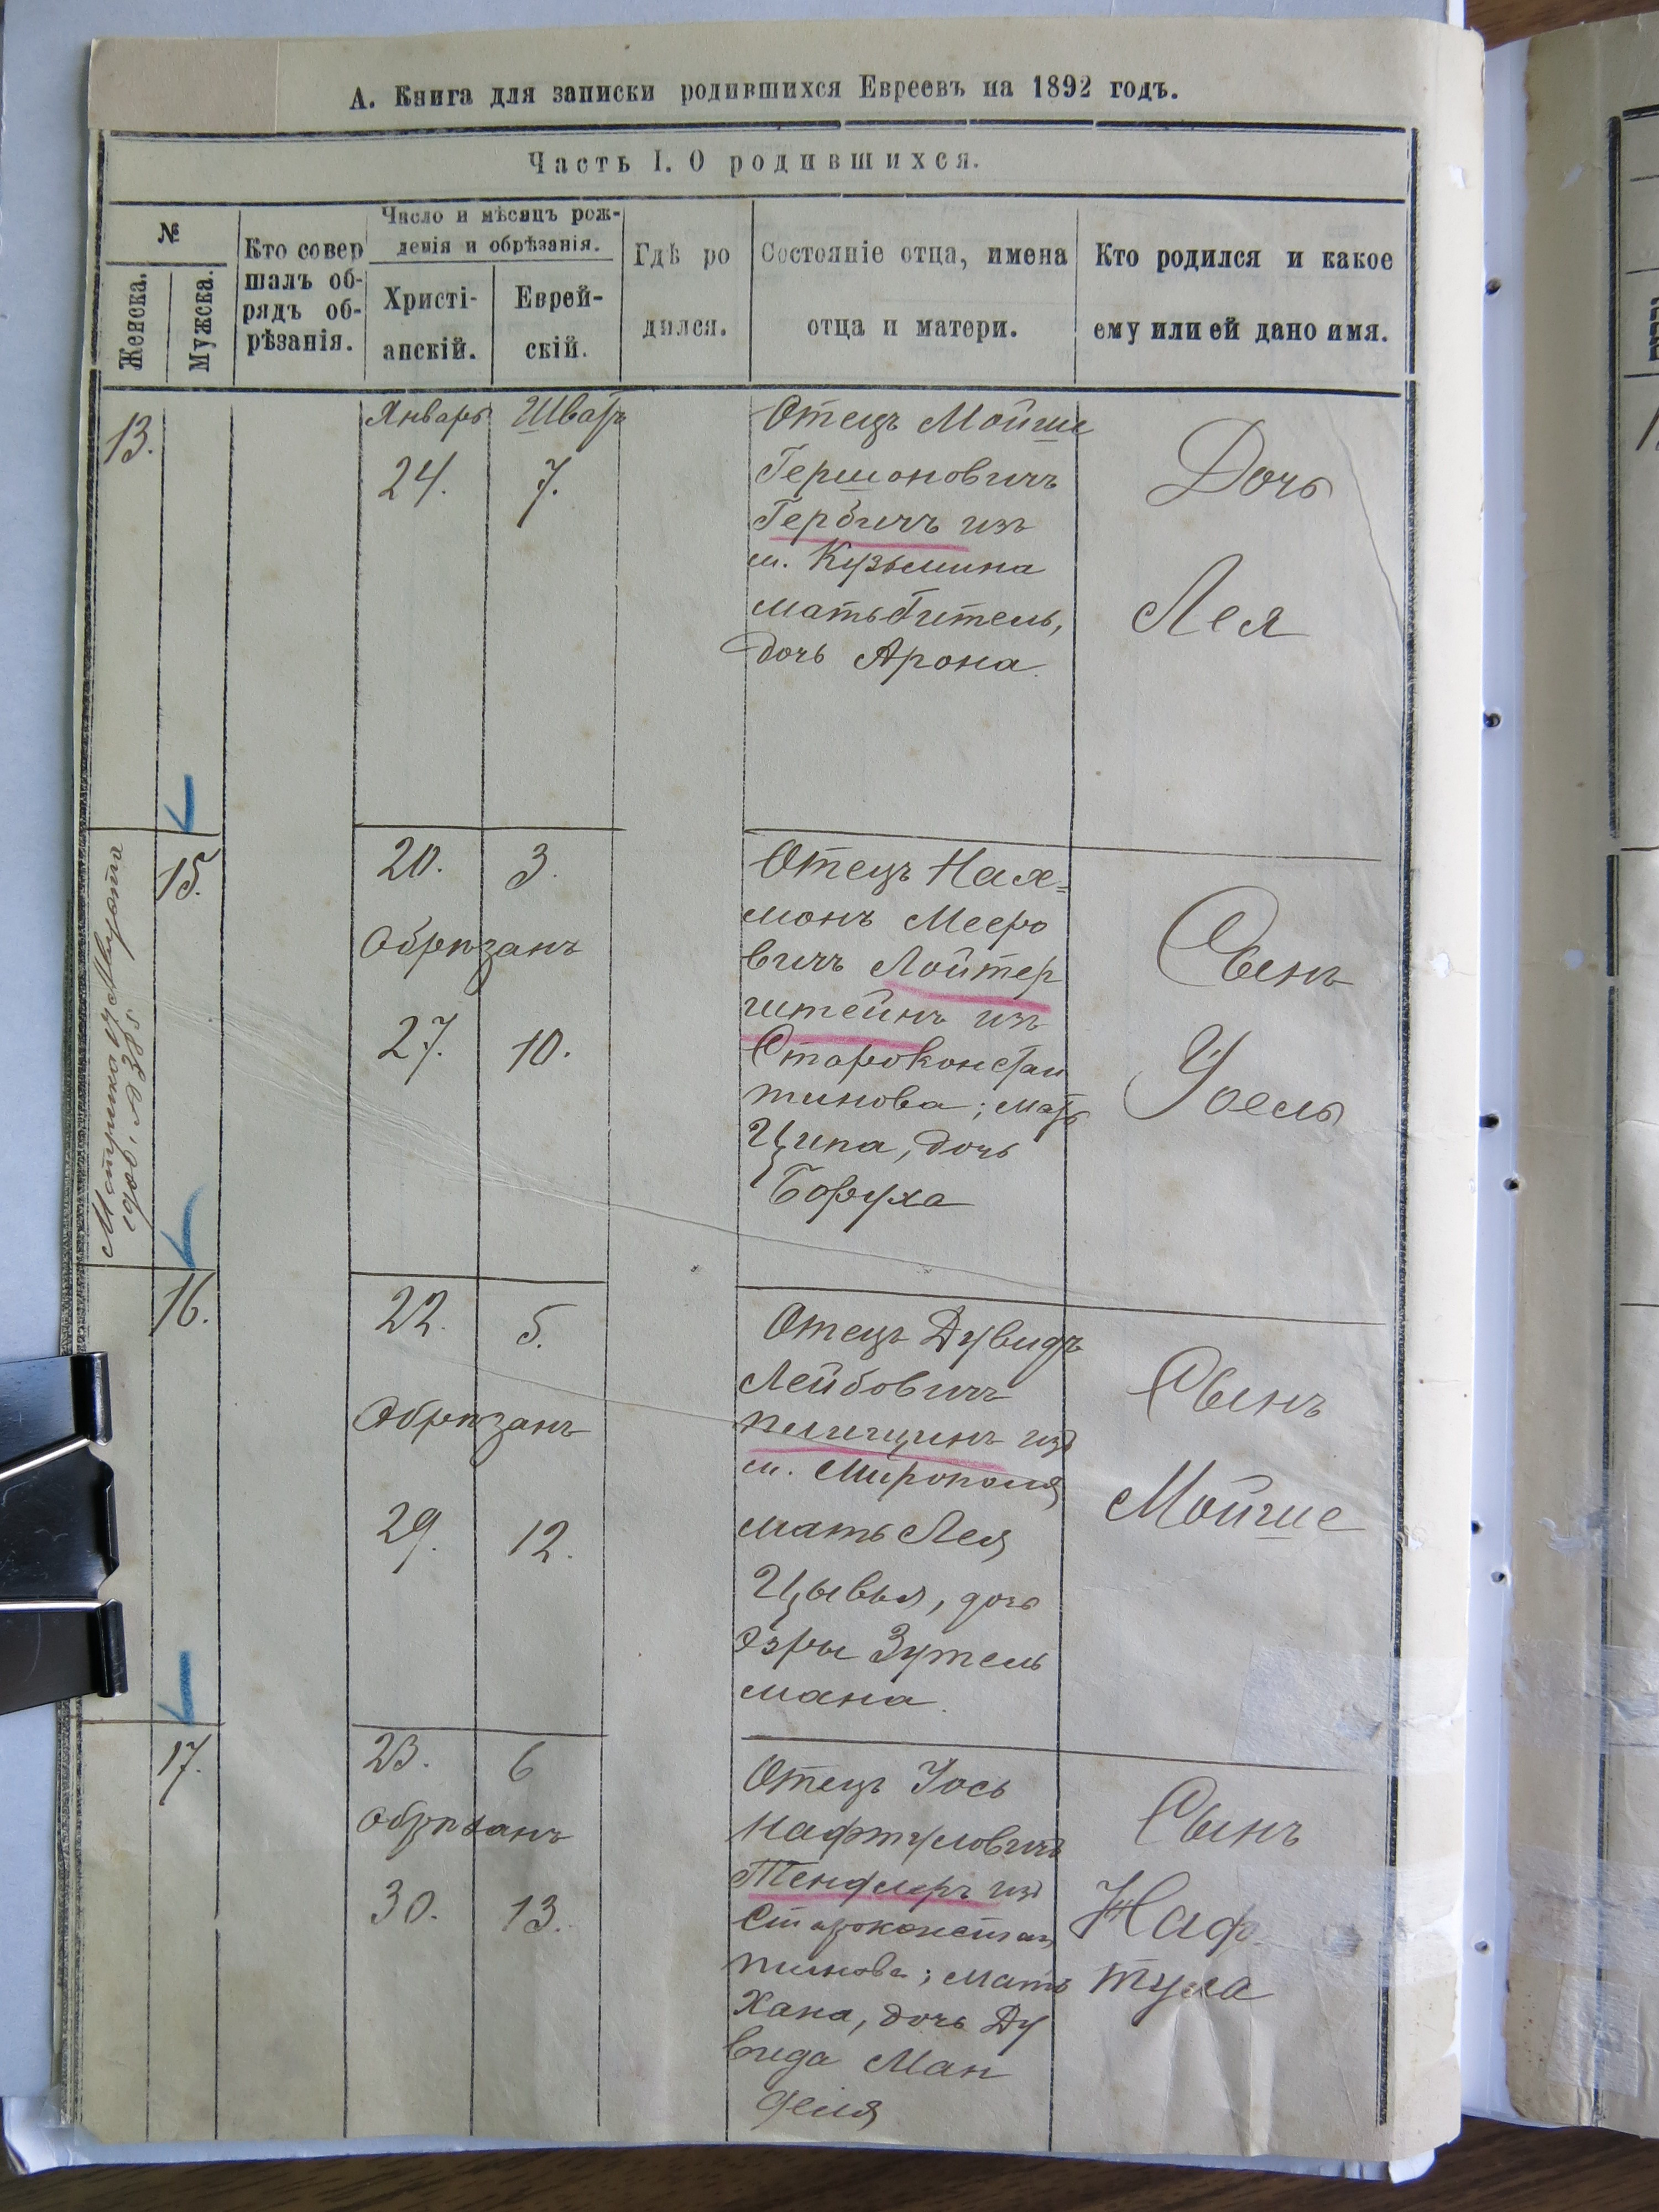 А. Книга для записки родившихся Евреевъ на 1892 годъ.
Часть I. О родившихся.
№
Женска.
Мужска.
Кто совер
шалъ об-
рядъ об-
рѣзанія.
Число и мѣсяцъ рож-
денія и обрѣзанія.
Христі-
анскій.
Еврей-
скій.
Гдѣ ро
дился.
Состояніе отца, имена
отца и матери.
Кто родился и какое
ему или ей дано имя.
13.
Январь
24.
Швать
7.
Отецъ Мойше
Гершоновичъ
Гербичъ изъ
м. Кузьмина
мать Гитель,
дочь Арона.
Дочь
Лея
15.
20.
3.
Обрѣзанъ
27.
10.
Отецъ Нах=
монъ Мееро
вичъ Лойтер
штейнъ изъ
Староконстан
тинова; мать
Ципа, дочь
Боруха
Сынъ
Іоель
Метрика
16.
22.
5.
Обрѣзанъ
29.
12.
Отецъ Дувидъ
Лейбовичъ
изъ
м. Мирополя
мать Лея
Цывья, дочь
Эзры Зутель
мана.
Сынъ
Мойше
17.
23.
6
обрѣзанъ
30.
13.
Отецъ Іось
Нафтуловичъ
Тендлеръ изъ
Староконстан
тинова; мать
Хана, дочь Ду
вида Ман
деля
Сынъ
Наф
тула